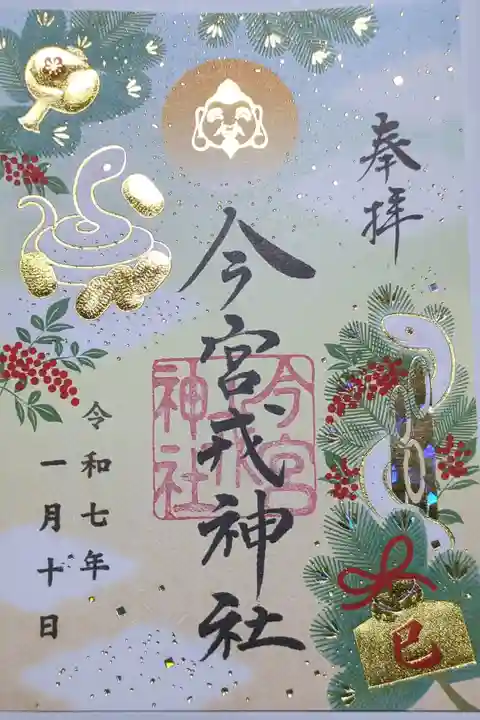 奉拝
今宮戎神社
今宮戎神社
令和七年
一月十日
巳